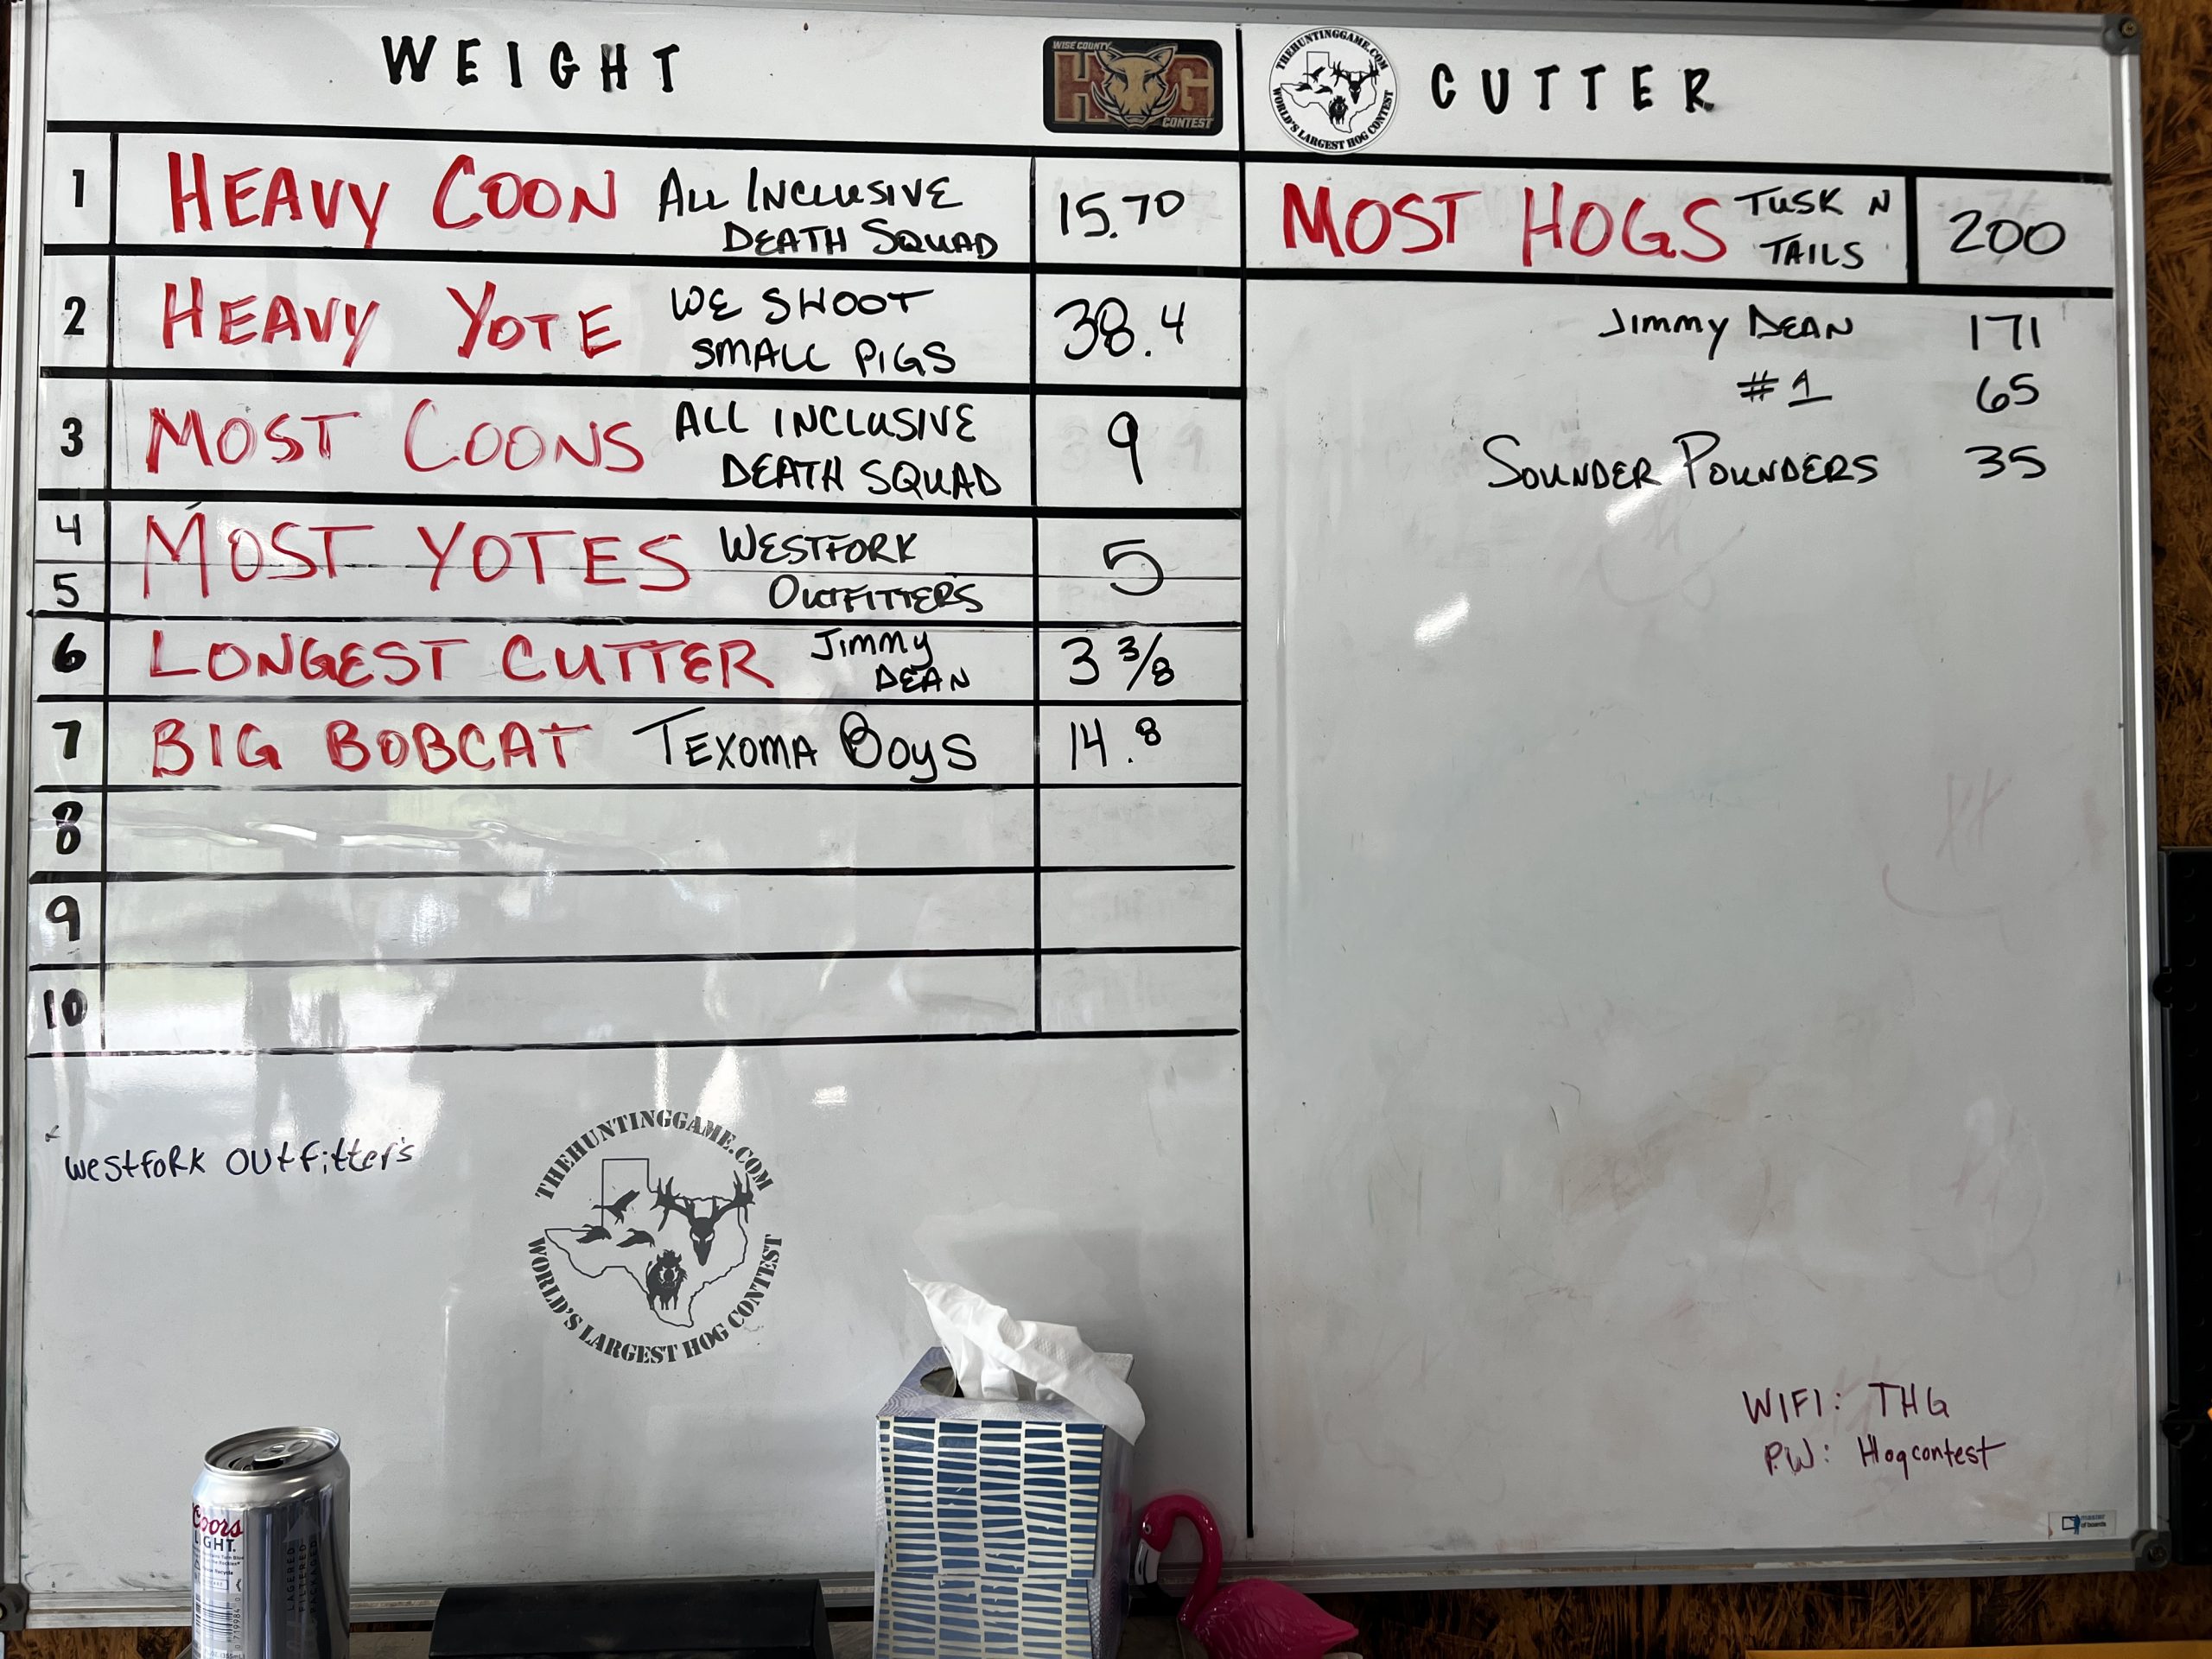 WEIGHT
WISE COUNTY
HOG
CONTEST
1 HEAVY COON ALL INCLUSIVE DEATH SQUAD 15.70
2 HEAVY YOTE WE SHOOT SMALL PIGS 38.4
3 MOST COONS ALL INCLUSIVE DEATH SQUAD 9
4 5 MOST YOTES WESTFORK OUTFITTERS 5
6 LONGEST CUTTER Jimmy DEAN 3 3/8
7 BIG BOBCAT TEXOMA BOYS 14.8
8
9
10
westfork outfitter's
THEHUNTINGGAME.COM
WORLD'S LARGEST HOG CONTEST
Coors
LIGHT.
LAGERED
FILTERED
PACKAGED
THEHUNTINGGAME.COM
WORLD'S LARGEST HOG CONTEST
CUTTER
MOST HOGS TUSK N TAILS 200
Jimmy DEAN 171
#1 65
SOUNDER POUNDERS 35
WIFI: THG
P.W: Hogcontest
master
of boards